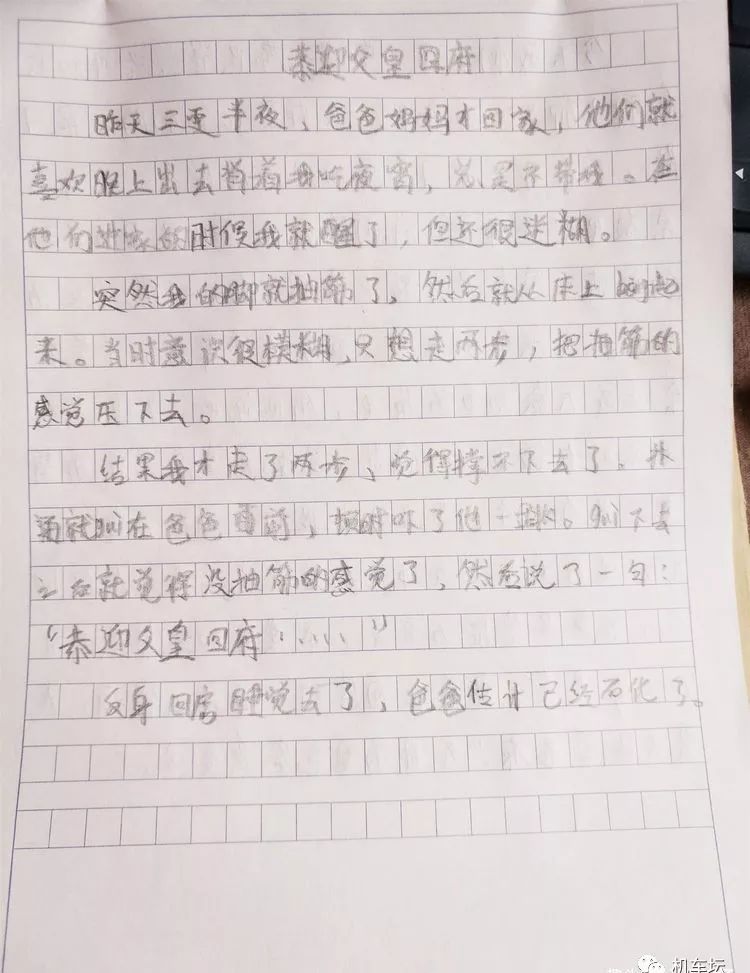 恭迎父皇回府
昨天三更半夜、爸爸妈妈才回家，他们就
喜欢晚上出去背着我吃夜宵，总是不带我。在
他们进家的时候我就醒了，但还很迷糊。
突然我的脚就抽筋了，然后就从床上beng起
来。当时意识很模糊，只想走两步，把抽筋的
感觉压下去。
结果我才走了两步、觉得撑不下去了。扑
通就gui在爸爸面前，顿时吓了他一跳。gui下去
之后就觉得没抽筋的感觉了，然后说了一句：
“恭迎父皇回府……”
反身回房睡觉去了，爸爸估计已经石化了。
机车坛